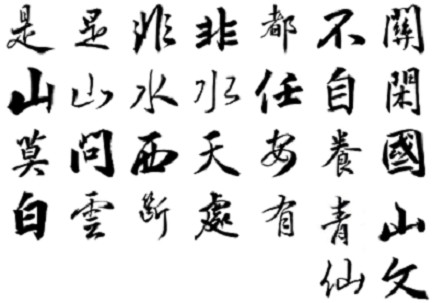 是是非非都不關
山山水水任自閑
莫問西天安養國
白雲斷處有青山
仙文